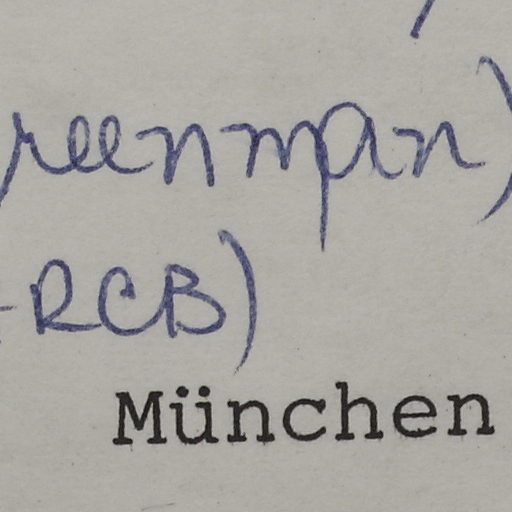 reenman)
-RCB)
München